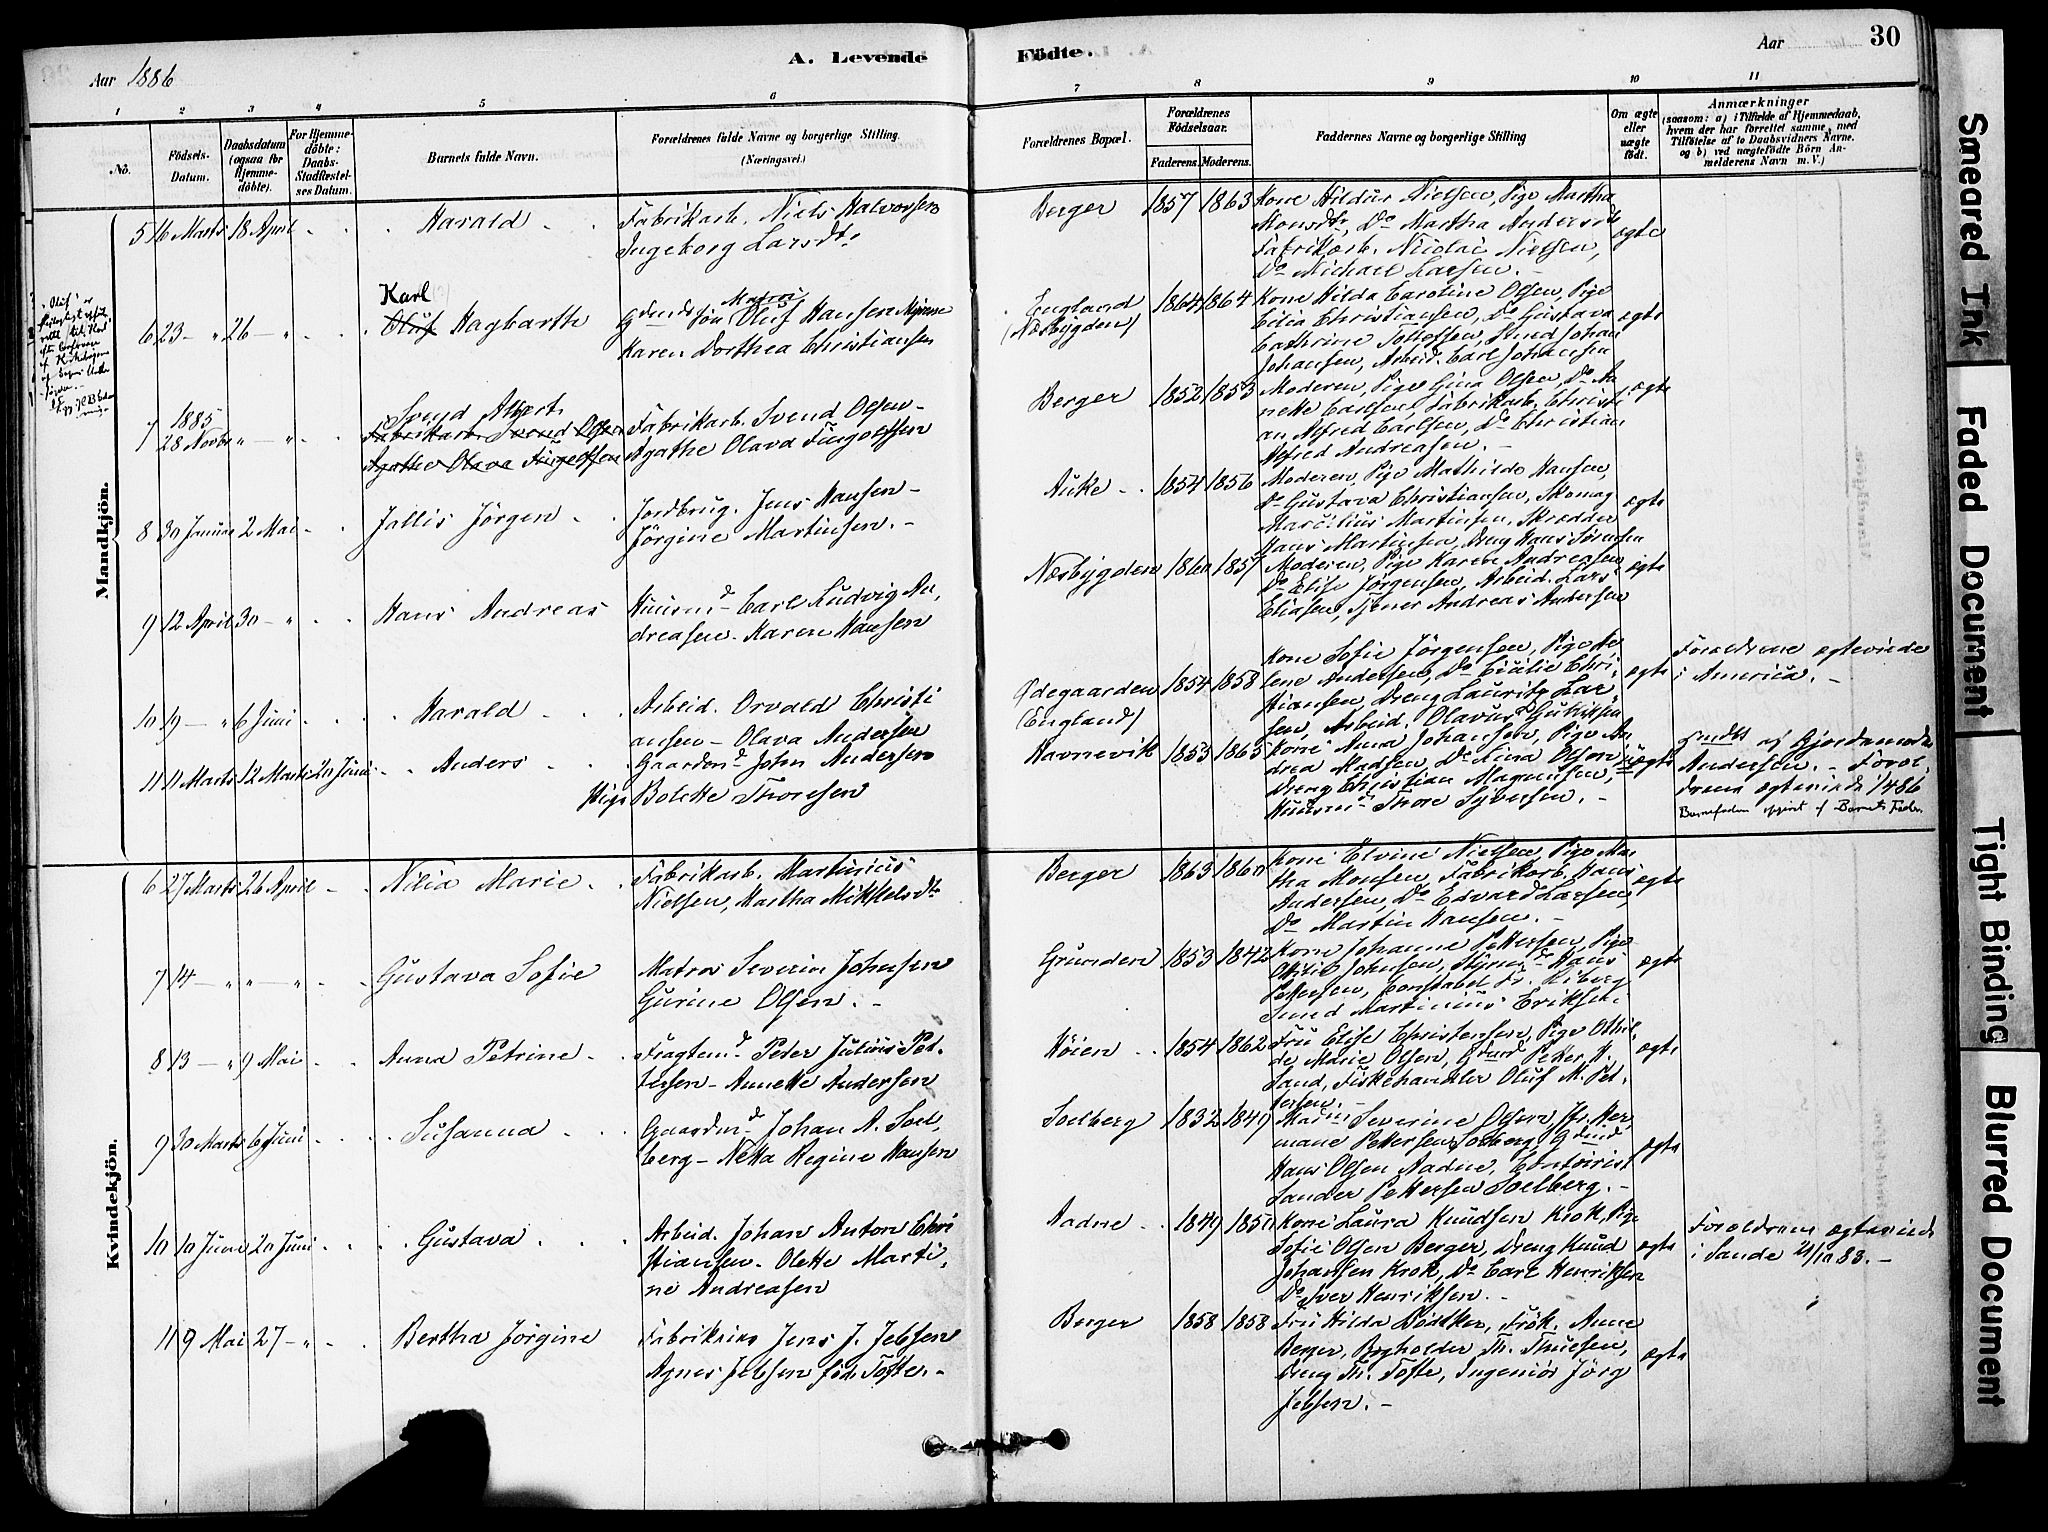 A. Levende Födte.
Aar 1886
Aar
30
1 2 3 4 5 6 7 8 9 10 11
No.
Födsels-Datum.
Daabsdatum (ogsaa for Hjemmedöbte).
For Hjemmedöbte: Daabs-Stadfæstelses Datum.
Barnets fulde Navn.
Forældrenes fulde Navne og borgerlige Stilling. (Næringsvei.)
Forældrenes Bopæl.
Forældrenes Födselsaar.
Faderens. Moderens.
Faddernes Navne og borgerlige Stilling
Om ægte eller uægte födt.
Anmærkninger
(saasom: a) i Tilfælde af Hjemmedaab, hvem der har forrettet samme, med Tilföielse af to Daabsvidners Navne. og b) ved uægtefödte Börn Anmelderens Navn m. V.)
Mandkjön.
5 16 Marts 18 April Harald
Fabrikarb. Niels Halvorsen
Ingeborg Larsdtr
Berger 1857 1863
Kone Hildur Nielsen, Pige Martha
Monsdtr, Do Martha Andersdtr
Fabrikarb. Nicolai Nielsen,
Do Michael Larsen. -
ægte
6 23 - " 26 - "
Karl
Oluf Hagbarth
Gdmds Søn Matros Oluf Hansen
Karen Dorthea Christiansen
England (Næsbygden) 1864 1864
Kone Hilda Caroline Olsen, Pige
Cilia Christiansen, Do Gustava
Cathrine Tollefsen, Knud Johan
Johansen, Arbeid. Carl Johansen
ægte
7 1885 28 Novbr " - "
Svend Albert
Fabrikarb. Svend Olsen
Agathe Olava Fingolfsen
Fabrikarb. Svend Olsen -
Agathe Olava Fingolfsen
Berger 1852 1853
Moderen, Pige Gina Olsen, Do An
nette Carlsen, Fabrikarb. Christi
an Alfred Carlsen, Do Christian
Alfred Andreasen. -
ægte
8 30 Januar 2 Mai Jallis Jörgen
Jordbrug. Jens Hansen -
Jörgine Martinsen. -
Auke 1854 1856
Moderen, Pige Mathilde Hansen,
Do Gustava Christiansen, Skomag
Marcelius Martinsen, Skrædder
Hans Martinsen, Dreng Hans Sörensen
ægte
9 12 April 30 - " Hans Andreas
Huusmd Carl Ludvig An,
dreasen - Karen Hansen
Næsbygden 1860 1857
Moderen, Pige Karen Andreasen
Do Elise Jörgensen, Arbeid. Lars
Eliasen, Tjener Andreas Andersen
ægte
10 19 - " 6 Juni Harald
Arbeid. Orvald Christi
ansen - Olava Andersen
Ødegaarden (England) 1854 1858
Kone Sofie Jörgensen, Pige He,
lene Andersen, Do Cicilie Chri,
stiansen, Dreng Lauritz Lar,
sen, Arbeid. Olavus Gulliksen
ægte
Forældrene ægteviede
i America. -
11 11 Marts 12 Marts 20 Juni Anders
Gaardmd John Andersen
Pige Bolette Thoresen
Havnevik 1853 1865
Kone Anna Johansen, Pige An
drea Madsen, Do Lina Olsen
Dreng Christian Magnussen,
Huusmd Thore Syversen. -
uægte
Andersen. - Foræl
drene ægteviede
Barnefaderen opgivet af Barnets Fader.
Kvindekjön.
6 27 Marts 26 April Nilia Marie
Fabrikarb. Martinius
Nielsen, Martha Mikkelsdtr
Berger 1863 1860
Kone Elvine Nielsen, Pige Mar
tha Monsen, Fabrikarb. Hans
Andersen, Do Edvard Larsen,
Do Martin Hansen. -
ægte
7 14 - " " - " Gustava Sofie
Matros Severin Johnsen
Gurine Olsen. -
Grunden 1853 1842
Kone Johanne Pettersen, Pige
Otilie Johnsen, Styrmd Hans
Pettersen, Constabel Fr. Liberg
Smed Martinius Eriksen.
ægte
8 13 - " 9 Mai Anna Petrine
Fragtemd Peder Julius Pet-
tersen - Annette Andersen
Höien 1854 1862
Fru Elise Christensen, Pige Othil
de Marie Olsen, Gdmd Petter H.
Sand, Fiskehandler Oluf M. Pet,
tersen. -
ægte
9 30 Marts 6 Juni Susanna
Gaardmd Johan A. Soel,
berg - Netta Regine Hansen
Soelberg 1832 1849
Madm Severine Olsen, Fr. Her,
mane Pettersen Soelberg, Gdmd
Hans Olsen Aadne, Contorist
Sander Pettersen Soelberg. -
ægte
10 10 Juni 20 Juni Gustava
Arbeid. Johan Anton Chri
stiansen - Olette Marti,
ne Andreasen
Aadne 1849 1850
Kone Laura Knudsen Krok, Pige
Sofie Olsen Berger, Dreng Knud
Johansen Krok, Do Carl Henriksen
Do Iver Henriksen. -
ægte
Forældrene ægteviede
i Sande 21/10 83. -
11 9 Mai 27 - " Bertha Jörgine
Fabrikeier Jens J. Jebsen
Agnes Jebsen föd. Tofte. -
Berger 1858 1858
Fru Hilda Bödtker, Frök. Anne
Berger, Bogholder Th. Thuesen,
Dreng Th. Tofte, Ingeniör Jörg
Jebsen. -
ægte
Smeared Ink
Faded Document
Tight Binding
Blurred Document